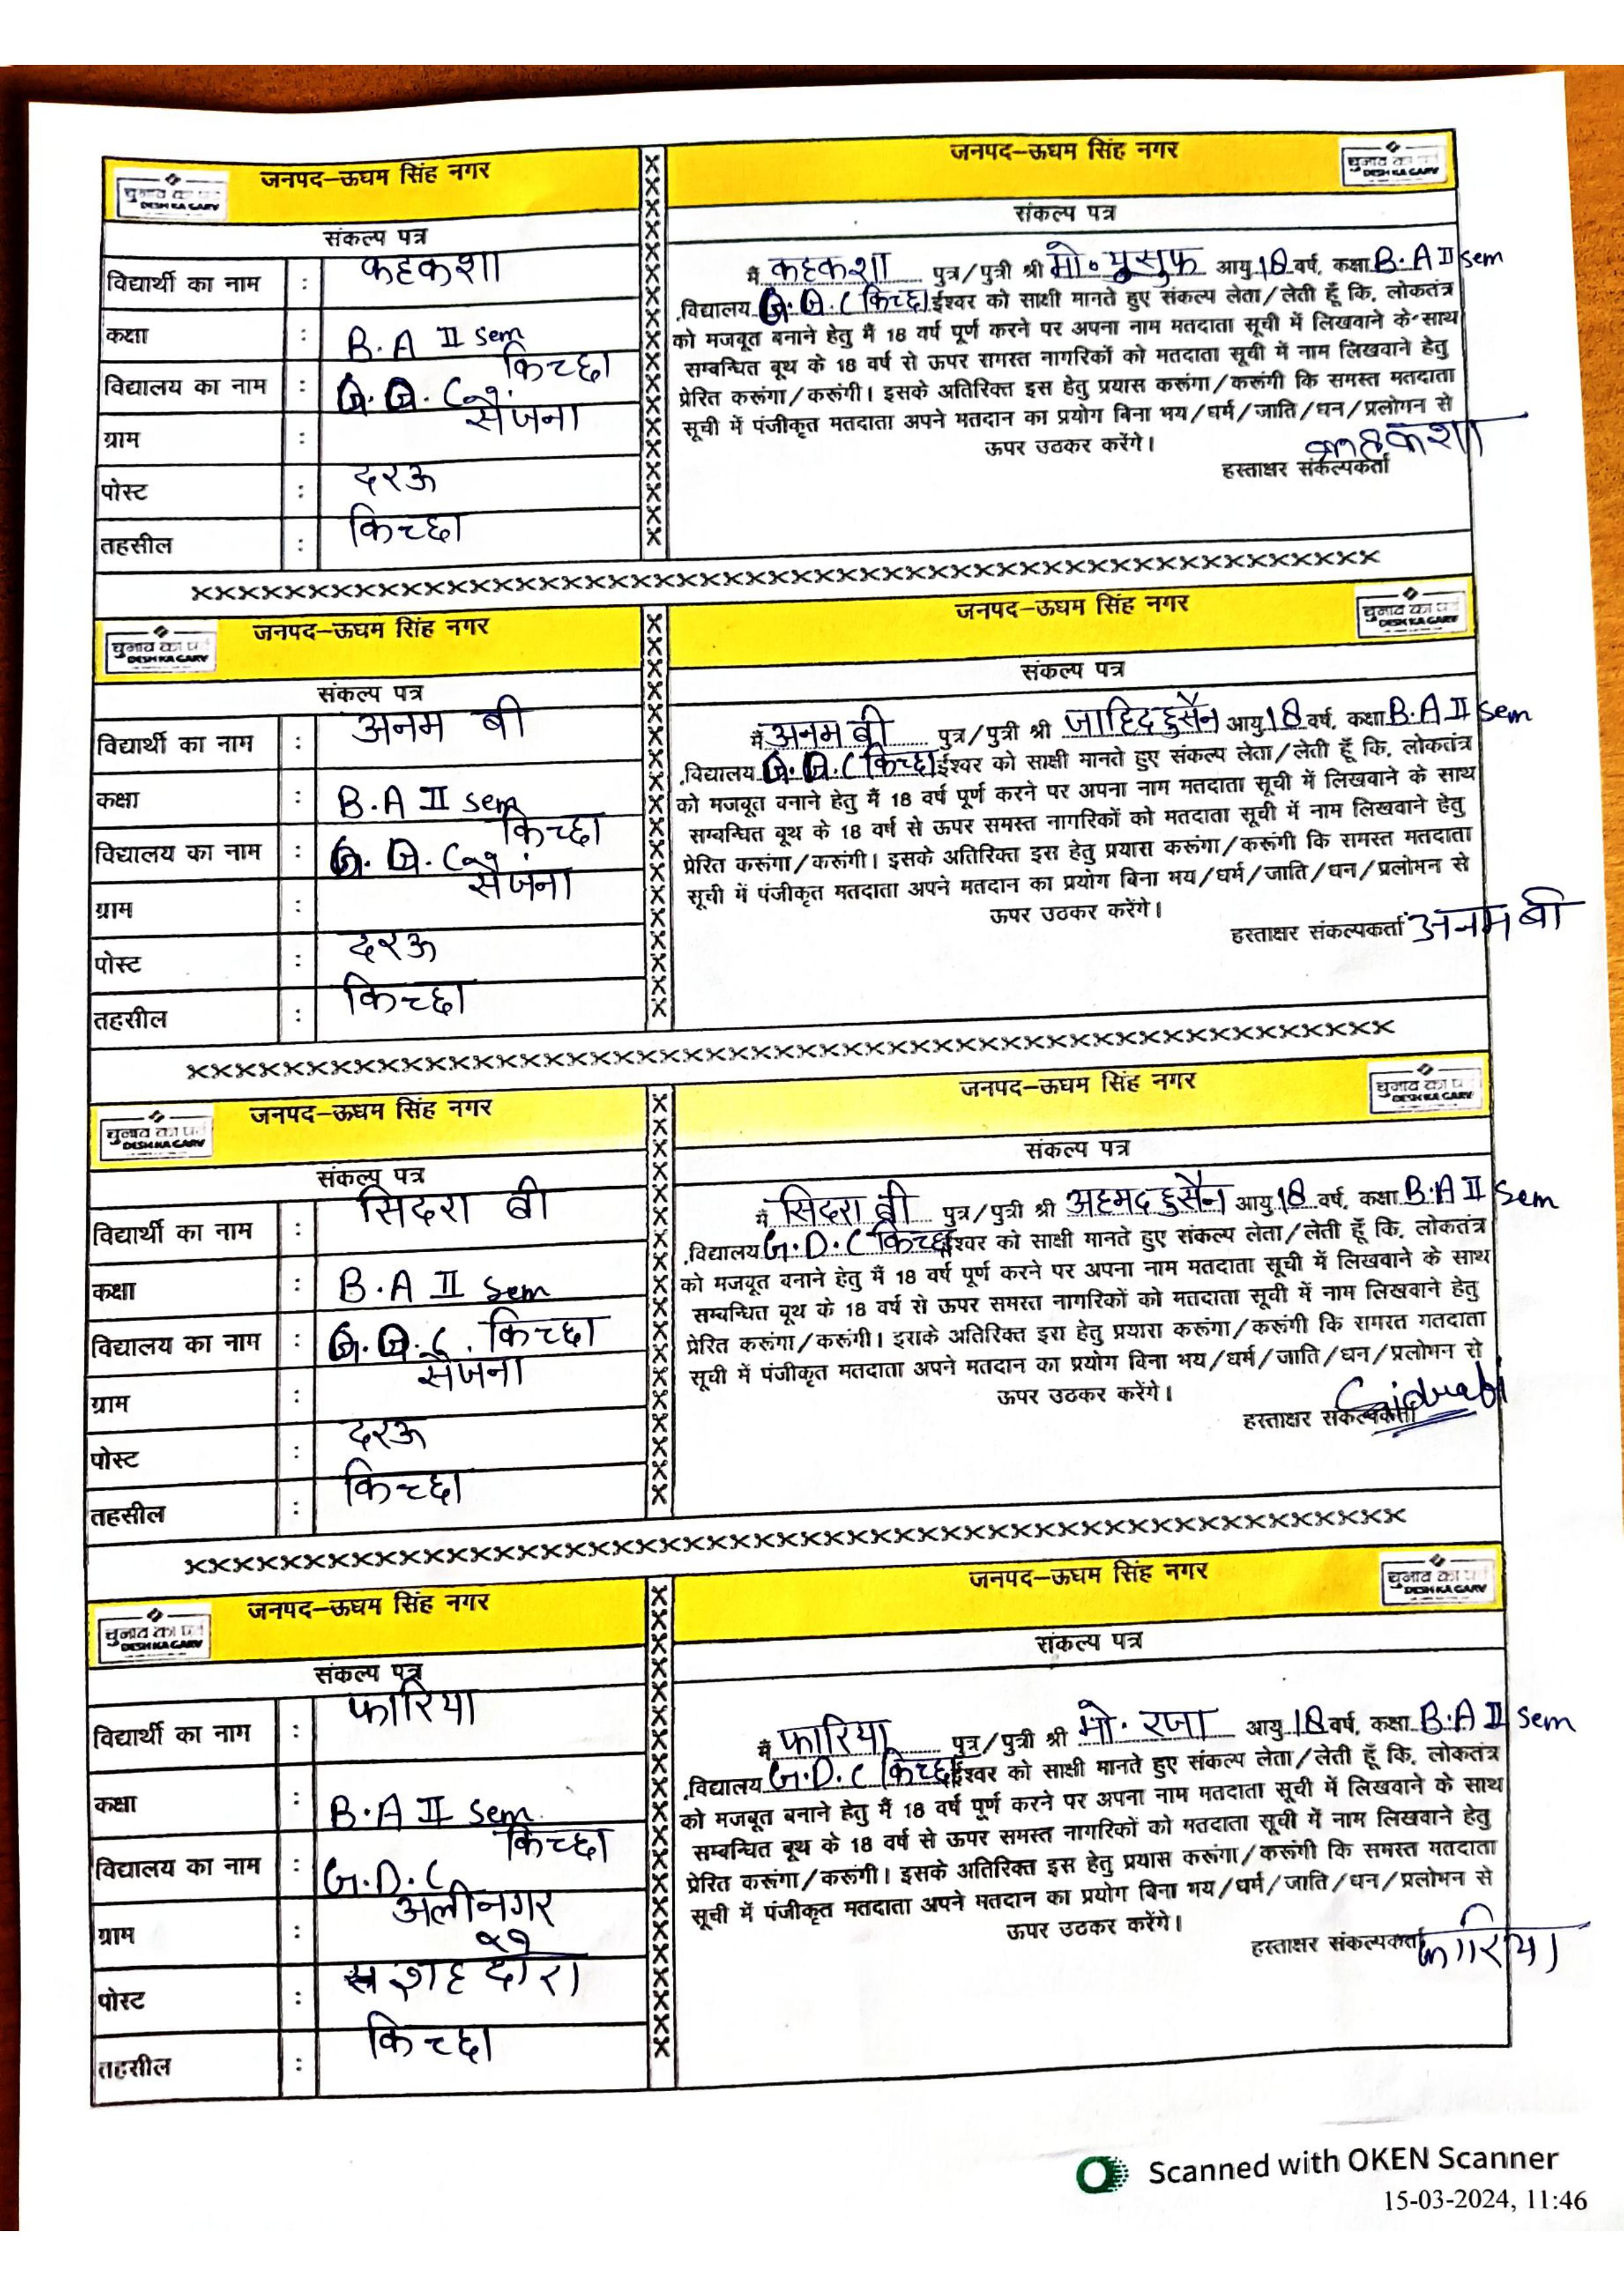 जनपद–ऊधम सिंह नगर
चुनाव का पर्व
DESH KA GARV
संकल्प पत्र
विद्यार्थी का नाम : कहकशा
कक्षा : B.A II sem
विद्यालय का नाम : G.D.C किच्छा
ग्राम : सैजना
पोस्ट : दरऊ
तहसील : किच्छा
जनपद–ऊधम सिंह नगर
चुनाव का पर्व
DESH KA GARV
संकल्प पत्र
मैं कहकशा पुत्र/पुत्री श्री मो० युसुफ आयु 18 वर्ष, कक्षा B.A II sem
विद्यालय G.D.C किच्छा ईश्वर को साक्षी मानते हुए संकल्प लेता/लेती हूँ कि, लोकतंत्र
को मजबूत बनाने हेतु मैं 18 वर्ष पूर्ण करने पर अपना नाम मतदाता सूची में लिखवाने के साथ
सम्बन्धित बूथ के 18 वर्ष से ऊपर समस्त नागरिकों को मतदाता सूची में नाम लिखवाने हेतु
प्रेरित करूंगा/करूंगी। इसके अतिरिक्त इस हेतु प्रयास करूंगा/करूंगी कि समस्त मतदाता
सूची में पंजीकृत मतदाता अपने मतदान का प्रयोग बिना भय/धर्म/जाति/धन/प्रलोभन से
ऊपर उठकर करेंगे।
कहकशा
हस्ताक्षर संकल्पकर्ता
जनपद–ऊधम सिंह नगर
चुनाव का पर्व
DESH KA GARV
संकल्प पत्र
विद्यार्थी का नाम : अनम बी
कक्षा : B.A II sem
विद्यालय का नाम : G.D.C किच्छा
ग्राम : सैजना
पोस्ट : दरऊ
तहसील : किच्छा
जनपद–ऊधम सिंह नगर
चुनाव का पर्व
DESH KA GARV
संकल्प पत्र
मैं अनम बी पुत्र/पुत्री श्री जाहिद हुसैन आयु 18 वर्ष, कक्षा B.A II sem
विद्यालय G.D.C किच्छा ईश्वर को साक्षी मानते हुए संकल्प लेता/लेती हूँ कि, लोकतंत्र
को मजबूत बनाने हेतु मैं 18 वर्ष पूर्ण करने पर अपना नाम मतदाता सूची में लिखवाने के साथ
सम्बन्धित बूथ के 18 वर्ष से ऊपर समस्त नागरिकों को मतदाता सूची में नाम लिखवाने हेतु
प्रेरित करूंगा/करूंगी। इसके अतिरिक्त इस हेतु प्रयास करूंगा/करूंगी कि समस्त मतदाता
सूची में पंजीकृत मतदाता अपने मतदान का प्रयोग बिना भय/धर्म/जाति/धन/प्रलोभन से
ऊपर उठकर करेंगे।
हस्ताक्षर संकल्पकर्ता अनम बी
जनपद–ऊधम सिंह नगर
चुनाव का पर्व
DESH KA GARV
संकल्प पत्र
विद्यार्थी का नाम : सिदरा बी
कक्षा : B.A II sem
विद्यालय का नाम : G.D.C. किच्छा
ग्राम : सैजना
पोस्ट : दरऊ
तहसील : किच्छा
जनपद–ऊधम सिंह नगर
चुनाव का पर्व
DESH KA GARV
संकल्प पत्र
मैं सिदरा बी पुत्र/पुत्री श्री अहमद हुसैन आयु 18 वर्ष, कक्षा B.A II Sem
विद्यालय G.D.C किच्छा ईश्वर को साक्षी मानते हुए संकल्प लेता/लेती हूँ कि, लोकतंत्र
को मजबूत बनाने हेतु मैं 18 वर्ष पूर्ण करने पर अपना नाम मतदाता सूची में लिखवाने के साथ
सम्बन्धित बूथ के 18 वर्ष से ऊपर समस्त नागरिकों को मतदाता सूची में नाम लिखवाने हेतु
प्रेरित करूंगा/करूंगी। इसके अतिरिक्त इस हेतु प्रयास करूंगा/करूंगी कि समस्त मतदाता
सूची में पंजीकृत मतदाता अपने मतदान का प्रयोग बिना भय/धर्म/जाति/धन/प्रलोभन से
ऊपर उठकर करेंगे।
Sidrabi
हस्ताक्षर संकल्पकर्ता
जनपद–ऊधम सिंह नगर
चुनाव का पर्व
DESH KA GARV
संकल्प पत्र
विद्यार्थी का नाम : फारिया
कक्षा : B.A II sem
विद्यालय का नाम : G.D.C किच्छा
ग्राम : अलीनगर
पोस्ट : शहदौरा
तहसील : किच्छा
जनपद–ऊधम सिंह नगर
चुनाव का पर्व
DESH KA GARV
संकल्प पत्र
मैं फारिया पुत्र/पुत्री श्री मो. रजा आयु 18 वर्ष, कक्षा B.A II sem
विद्यालय G.D.C किच्छा ईश्वर को साक्षी मानते हुए संकल्प लेता/लेती हूँ कि, लोकतंत्र
को मजबूत बनाने हेतु मैं 18 वर्ष पूर्ण करने पर अपना नाम मतदाता सूची में लिखवाने के साथ
सम्बन्धित बूथ के 18 वर्ष से ऊपर समस्त नागरिकों को मतदाता सूची में नाम लिखवाने हेतु
प्रेरित करूंगा/करूंगी। इसके अतिरिक्त इस हेतु प्रयास करूंगा/करूंगी कि समस्त मतदाता
सूची में पंजीकृत मतदाता अपने मतदान का प्रयोग बिना भय/धर्म/जाति/धन/प्रलोभन से
ऊपर उठकर करेंगे।
हस्ताक्षर संकल्पकर्ता फारिया
Scanned with OKEN Scanner
15-03-2024, 11:46